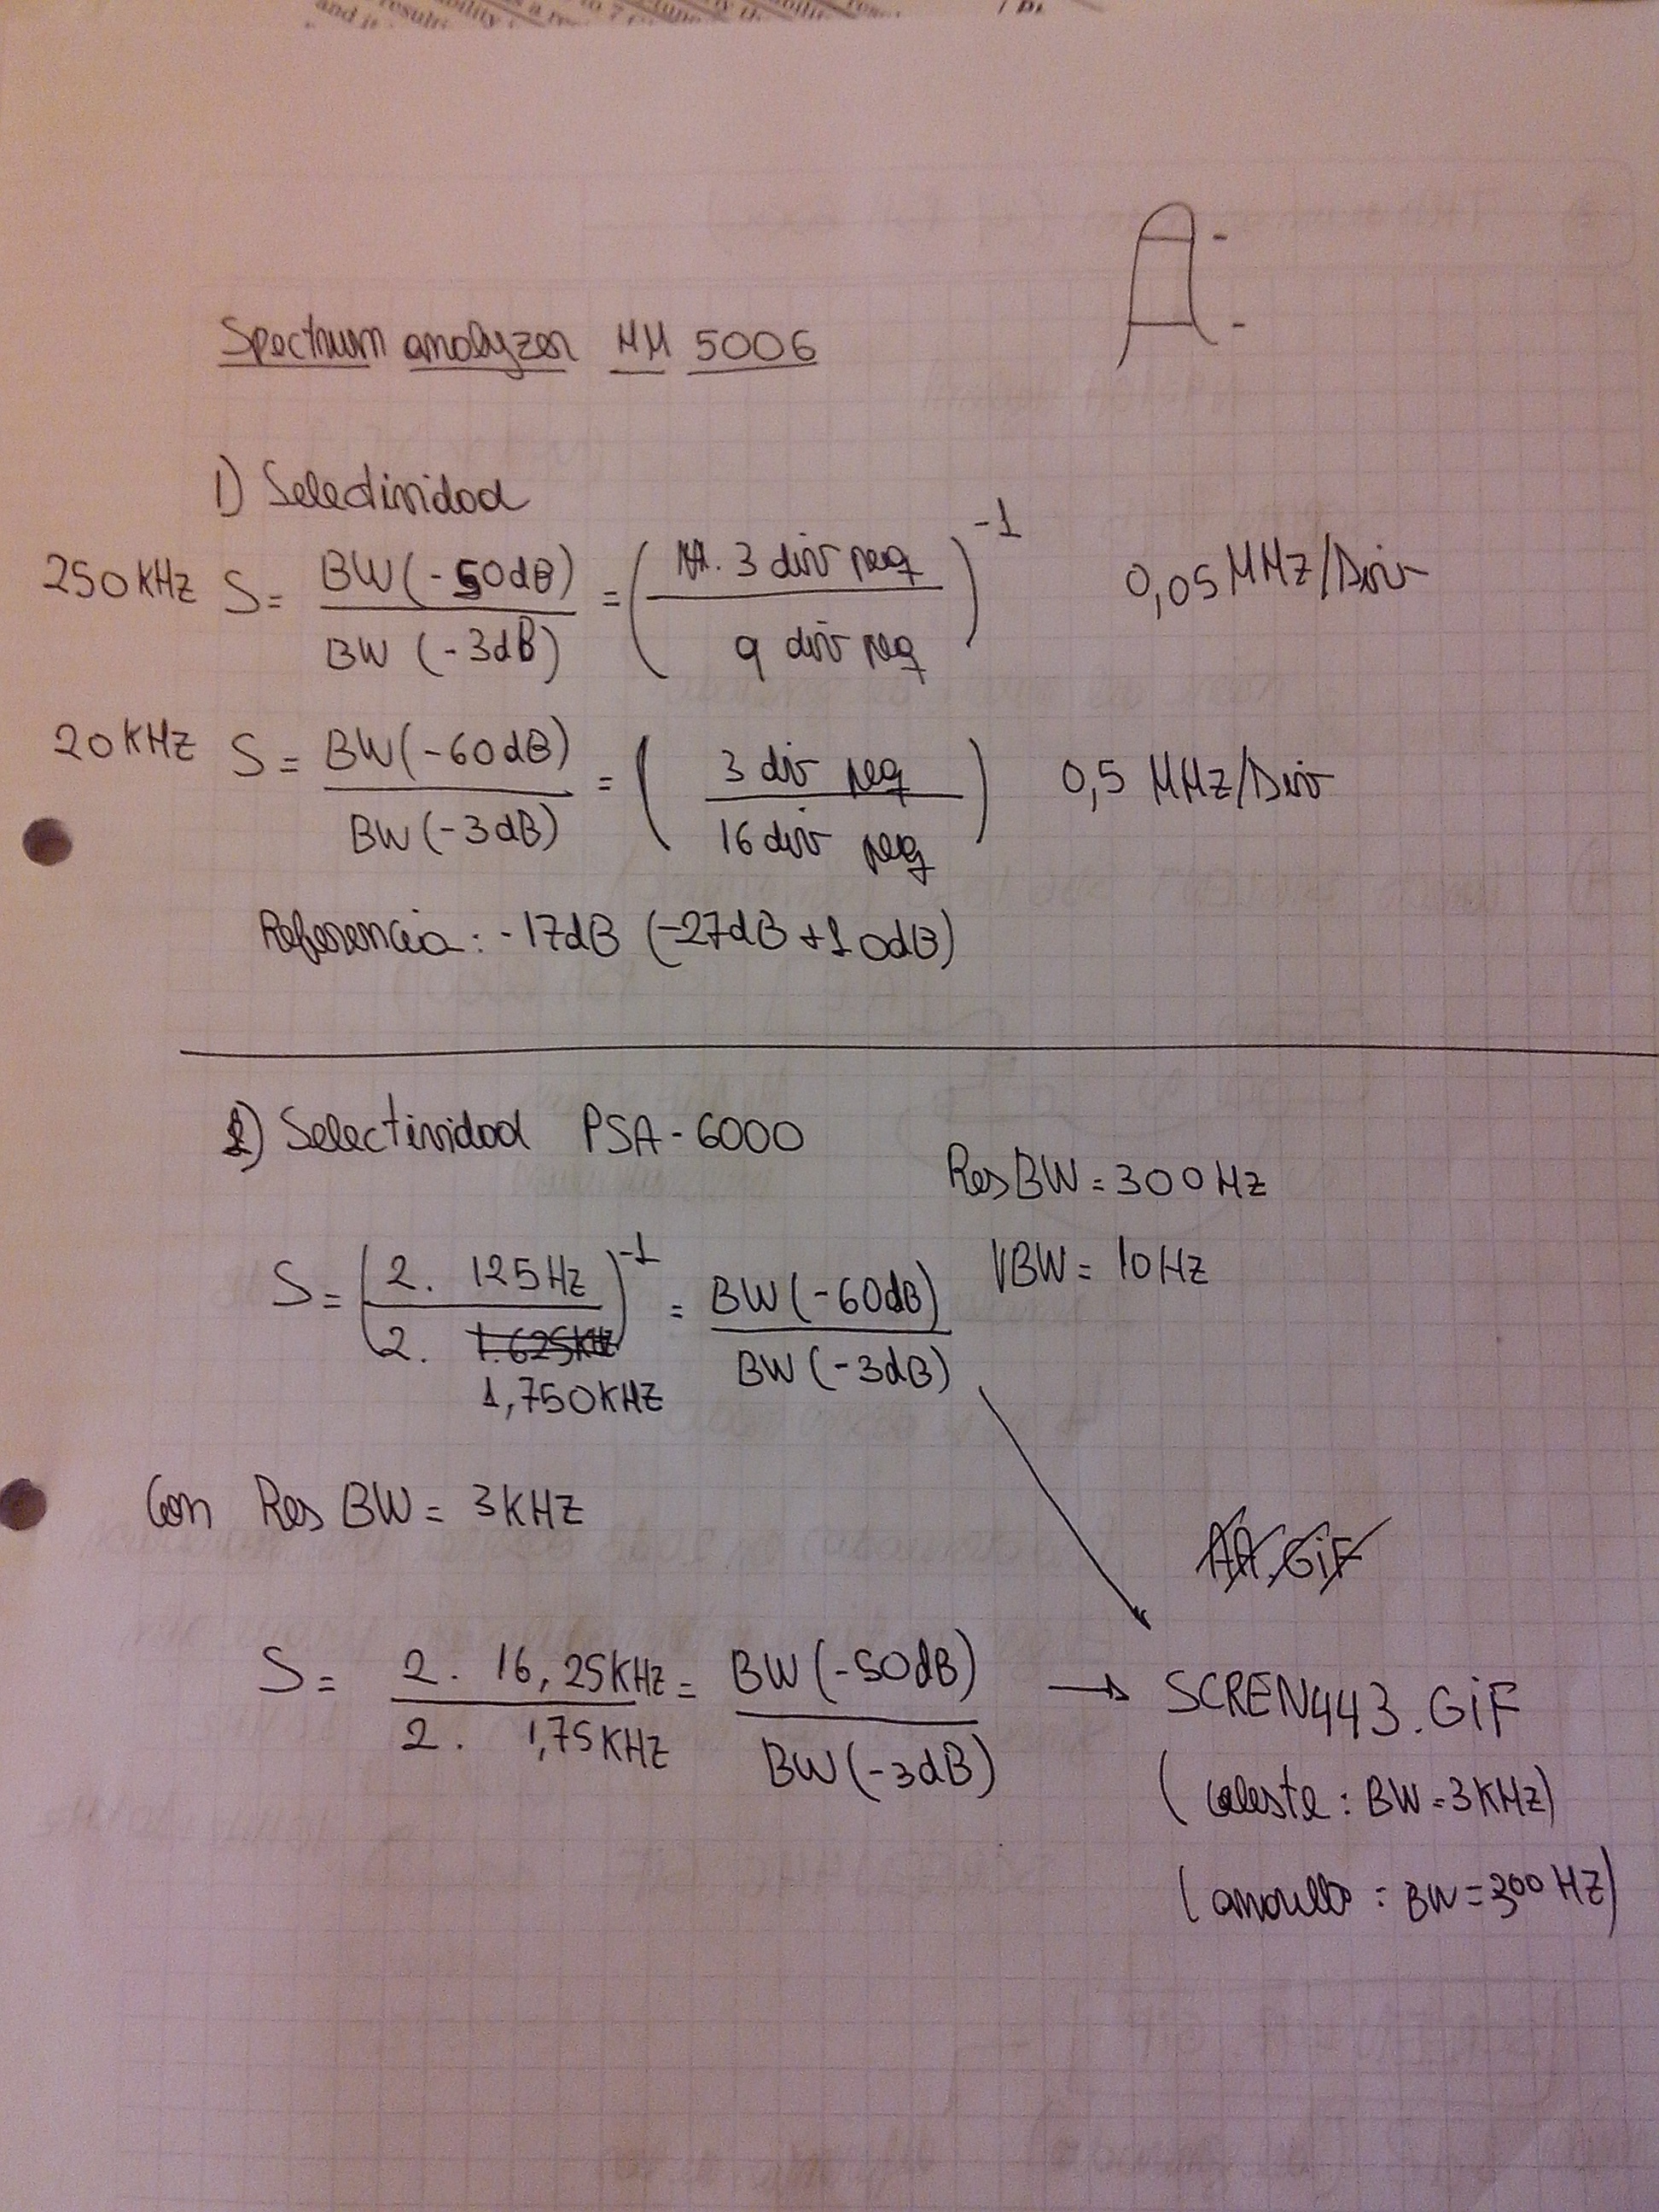 Spectrum analyzer HM 5006
1) Selectividad
250KHz S = BW(-50dB) / BW(-3dB) = ( 3 div peq / 9 div peq )^-1 0,05 MHz/Div
20KHz S = BW(-60dB) / BW(-3dB) = ( 3 div peq / 16 div peq ) 0,5 MHz/Div
Referencia: -17dB (-27dB +10dB)
2) Selectividad PSA-6000
Res BW = 300Hz
VBW = 10Hz
S = ( 2. 125Hz / 2. 1.625KHz 1,750KHz )^-1 = BW(-60dB) / BW(-3dB)
Con Res BW = 3KHz
AA.GiF
S = 2. 16,25KHz / 2. 1,75KHz = BW(-50dB) / BW(-3dB) → SCREN443.GiF
(celeste: BW=3KHz)
(amarillo: BW=300HZ)